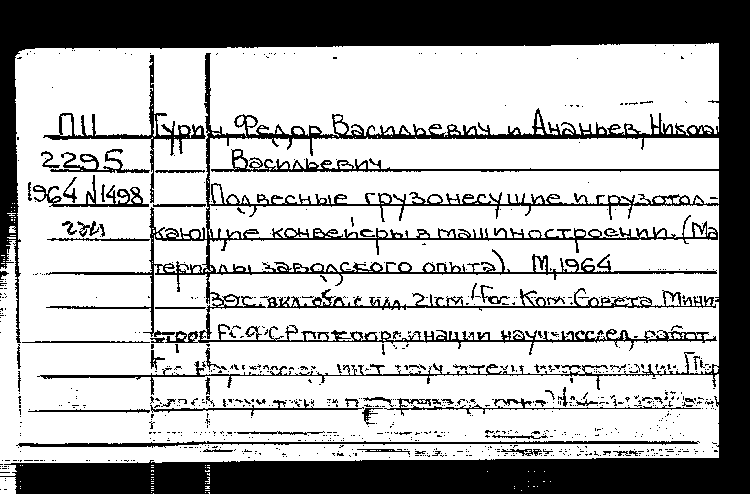 ПII Гурин, Федор Васильевич и Ананьев, Никола
2295 Васильевич.
1964 №1498 Подвесные грузонесущие и грузотол-
кающие конвейеры в машиностроении. (Ма
териалы заводского опыта). М, 1964
39с. вкл. обл. с илл. 21см. (Гос. Ком. Совета Мини-
стров РСФСР по координации науч.-исслед. работ.
Гос. науч.-исслед. ин-т науч. и техн. информации. Пер
опыт